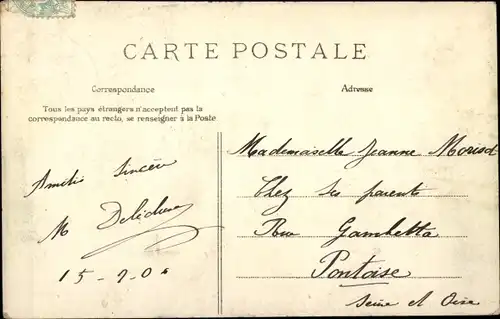 CARTE POSTALE
Correspondance
Adresse
Tous les pays étrangers n'acceptent pas la
correspondance au recto, se renseigner à la Poste
Amitié sincère
M
15-9-0
Mademoiselle Jeanne
Chez ses parents
Rue Gambetta
Pontoise
Seine et Oise